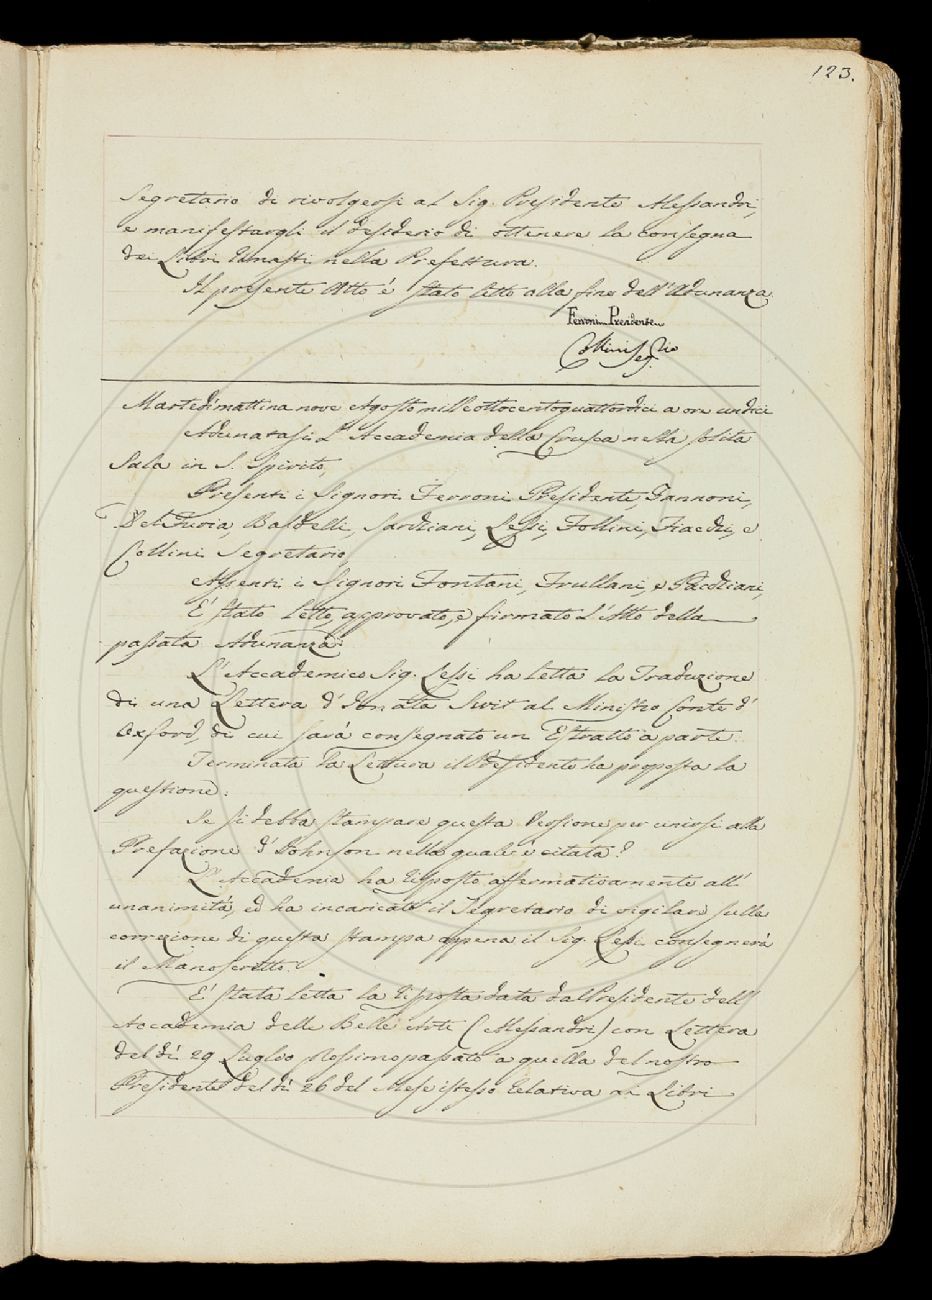 123.
Segretario di rivolgersi al Sig. Presidente Alessandri,
e manifestargli il desiderio di ottenere la consegna
dei Libri rimasti nella Prefettura.
Il presente Atto è stato letto alla fine dell'Adunanza.
Ferroni Presidente
Collini Seg.rio
Martedì mattina nove Agosto mille ottocentoquattordici a ore undici
Adunatasi l'Accademia della Crusca nella solita
Sala in S. Spirito,
Presenti i Signori Ferroni Presidente, Zannoni,
Del Furia, Baldelli, Sarchiani, Lessi, Follini, Fiacchi, e
Collini Segretario,
Assenti i Signori Fontani, Frullani, e
È stato letto, approvato, e firmato l'Atto della
passata Adunanza.
L'Accademico Sig. Lessi ha letta la Traduzione
di una Lettera d' Swit al Ministro Conte d'
Oxford, di cui sarà consegnato un Estratto a parte.
Terminata la Lettura il Presidente ha proposta la
questione:
Se si debba stampare questa Versione per unirsi alla
Prefazione d'Johnson nella quale è citata?
L'Accademia ha risposto affermativamente all'
unanimità, ed ha incaricato il Segretario di vigilare sulla
correzione di questa stampa appena il Sig. Lessi consegnerà
il Manoscritto.
È stata letta la risposta data dal Presidente dell'
Accademia delle Belle Arti (Alessandri) con Lettera
del dì 29 Luglio prossimo passato a quella del nostro
Presidente del dì 26 del Mese istesso relativa ai Libri